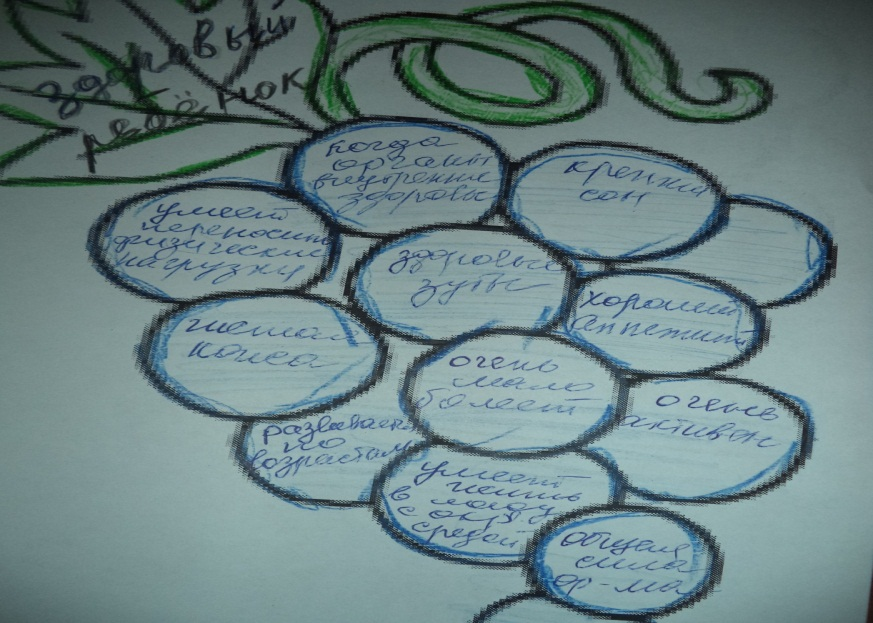 здоровый
ребёнок
когда
органы
внутренние
здоровы
крепкий
сон
умеет
переносить
физические
нагрузки
здоровые
зубы
хороший
аппетит
чистая
кожа
очень
мало
болеет
очень
активен
развивается
по
возрастам
умеет
жить
в ладу
с окр.
средой
общая
сила
ор-ма